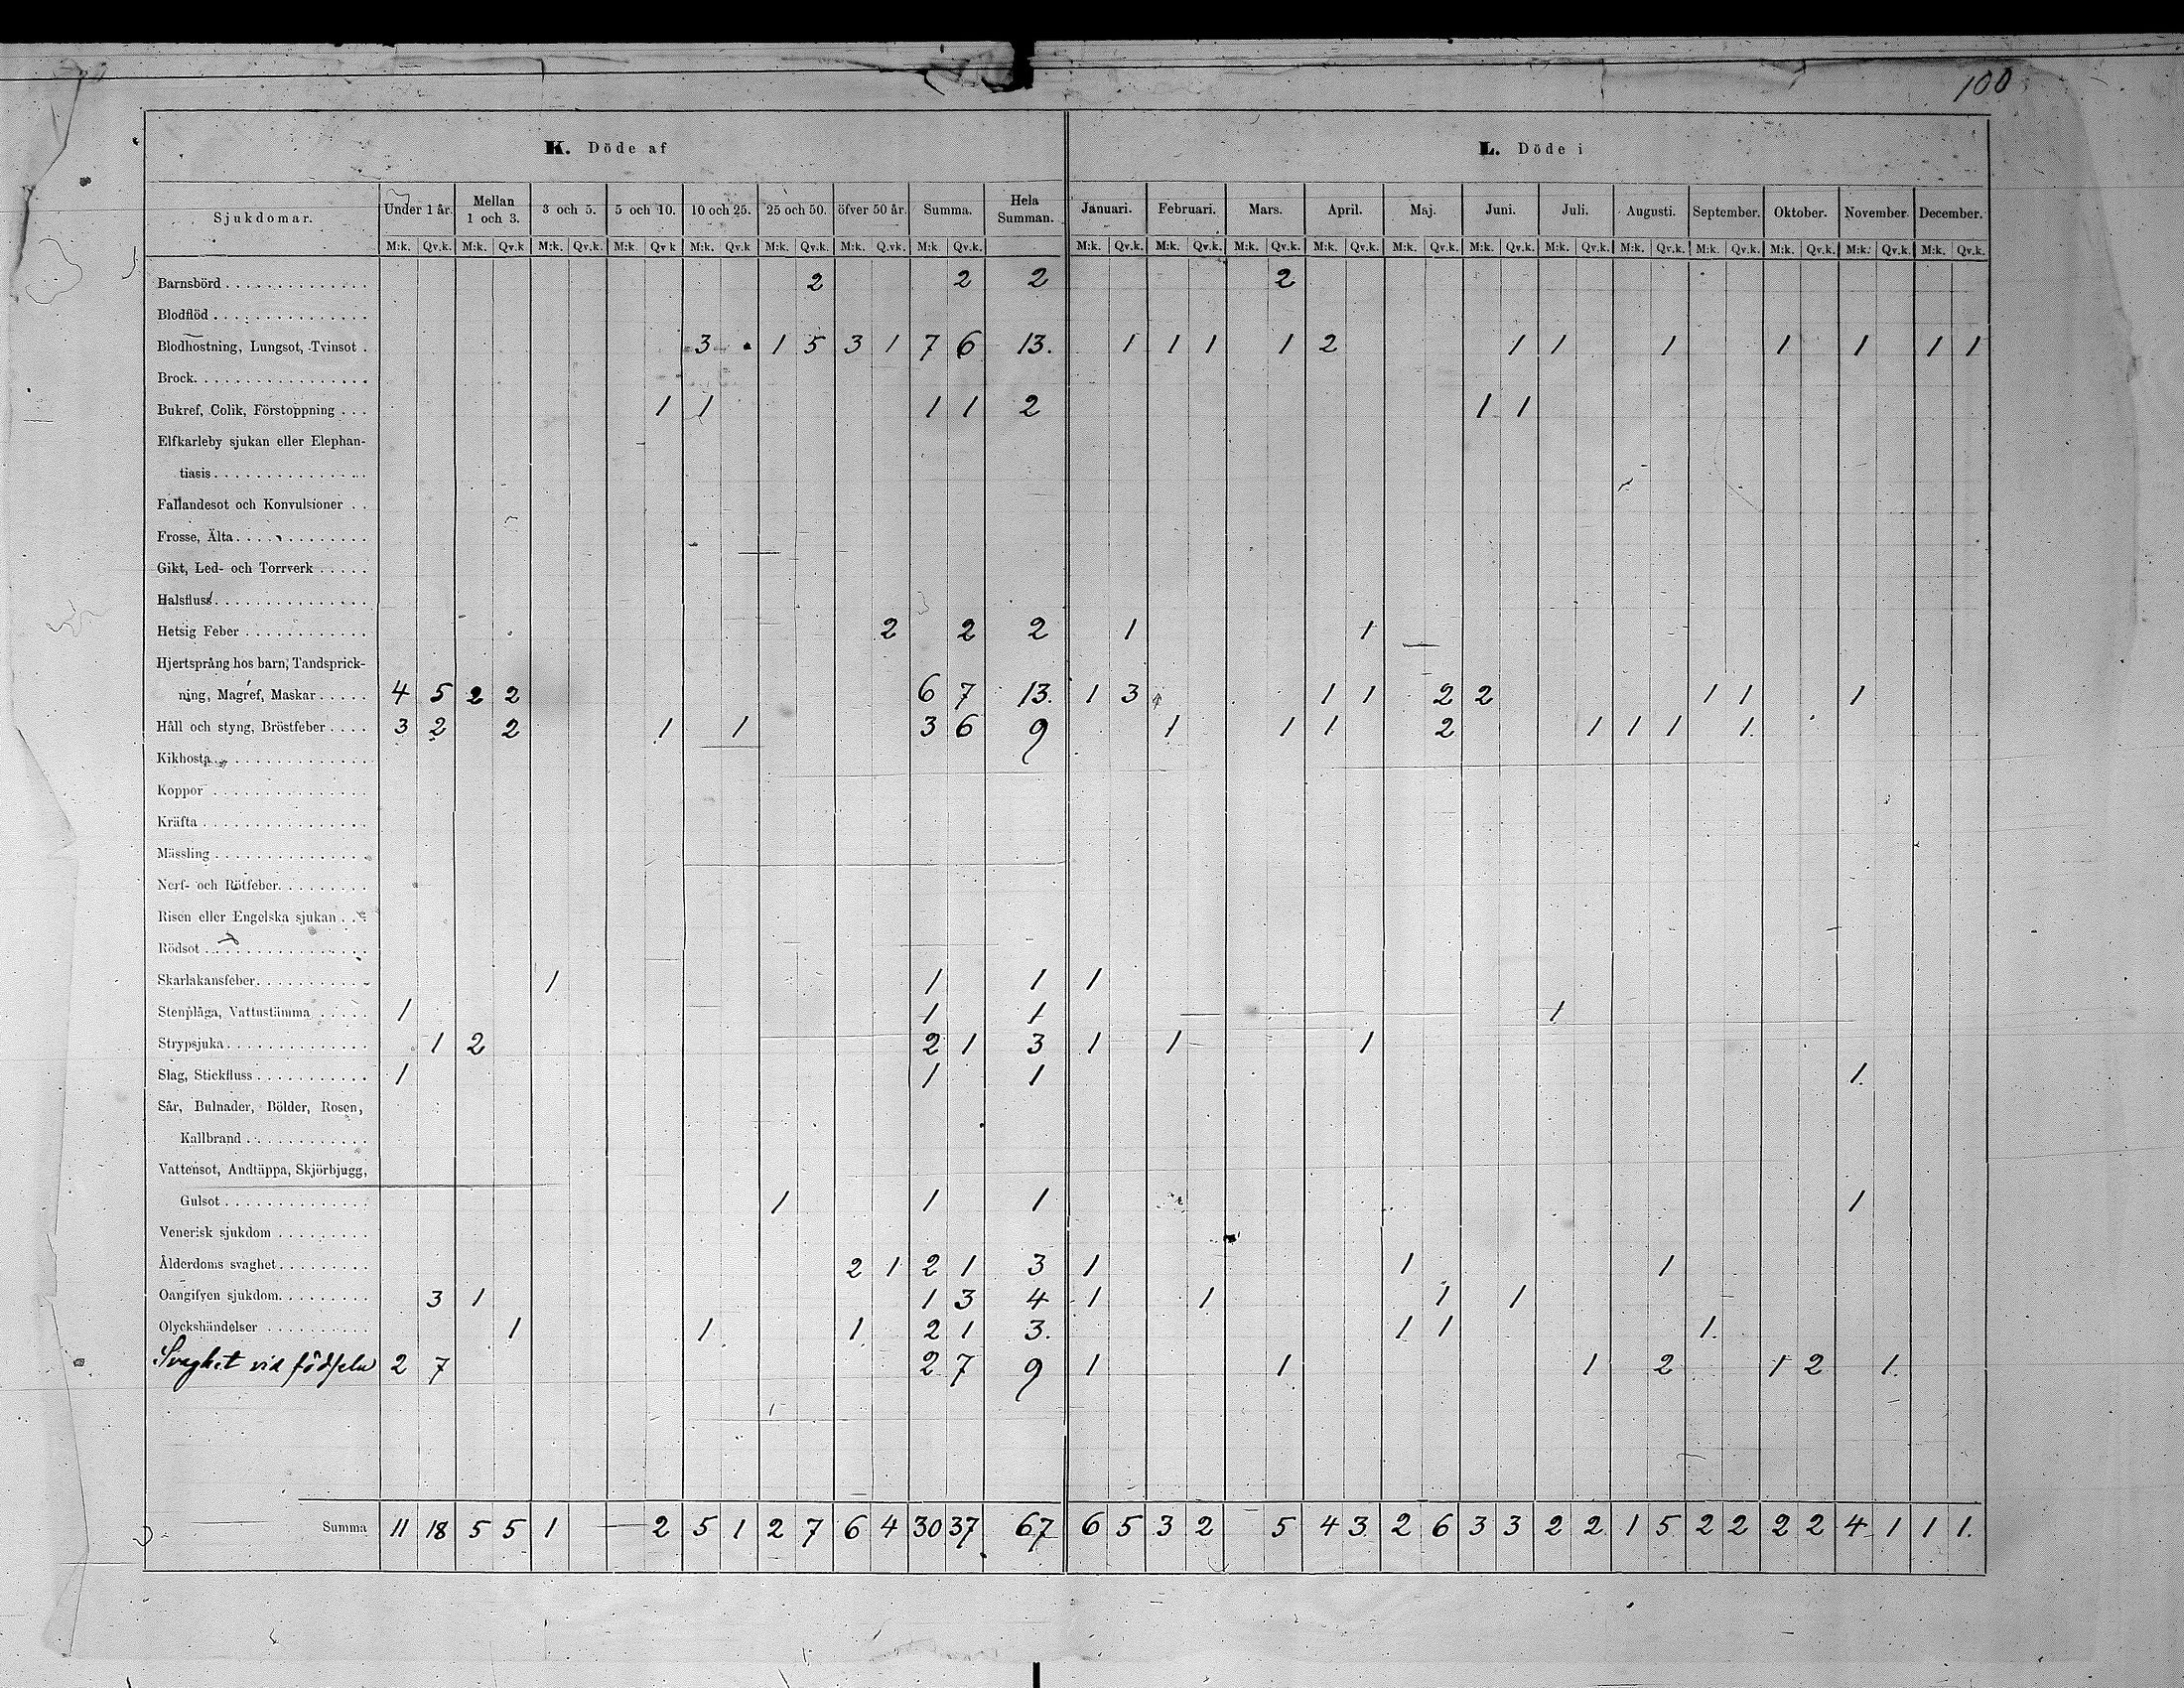 100
K. Döde af L. Döde i
Sjukdomar. Under 1 år. Mellan 1 och 3. 3 och 5. 5 och 10. 10 och 25. 25 och 50. öfver 50 år. Summa. Hela Summan. Januari. Februari. Mars. April. Maj. Juni. Juli. Augusti. September. Oktober. November. December.
M:k. Qv.k. M:k. Qv.k M:k. Qv.k. M:k. Qv k M:k. Qv.k M:k. Qv.k. M:k. Q.vk. M:k Qv.k. M:k. Qv.k. M:k. Qv.k. M:k. Qv.k. M:k. Qv.k. M:k. Qv.k. M:k. Qv.k. M:k. Qv.k. M:k. Qv.k. M:k. Qv.k. M:k. Qv.k. M:k. Qv.k. M:k. Qv.k.
Barnsbörd . . . . . . . . . . . . . . 2 2 2 2
Blodflöd . . . . . . . . . . . . . . .
Blodhostning, Lungsot, Tvinsot . 3 1 5 3 1 7 6 13. 1 1 1 1 2 1 1 1 1 1 1 1
Brock. . . . . . . . . . . . . . . . .
Bukref, Colik, Förstoppning . . . 1 1 1 1 2 1 1
Elfkarleby sjukan eller Elephan-
tiasis . . . . . . . . . . . . . . .
Fallandesot och Konvulsioner . .
Frosse, Älta . . . . . . . . . . . . .
Gikt, Led- och Torrverk . . . . .
Halsfluss . . . . . . . . . . . . . . .
Hetsig Feber . . . . . . . . . . . . 2 2 2 1 1
Hjertsprång hos barn, Tandsprick-
ning, Magref, Maskar . . . . . 4 5 2 2 6 7 13. 1 3 1 1 2 2 1 1 1
Håll och styng, Bröstfeber . . . . 3 2 2 1 1 3 6 9 1 1 1 2 1 1 1 1.
Kikhosta . . . . . . . . . . . . . . .
Koppor . . . . . . . . . . . . . . .
Kräfta . . . . . . . . . . . . . . . .
Mässling . . . . . . . . . . . . . . .
Nerf- och Rötfeber. . . . . . . . .
Risen eller Engelska sjukan . . .
Rödsot . . . . . . . . . . . . . . . .
Skarlakansfeber. . . . . . . . . . . 1 1 1 1
Stenplåga, Vattustämma . . . . . 1 1 1 1
Strypsjuka . . . . . . . . . . . . . . 1 2 2 1 3 1 1 1
Slag, Stickfluss . . . . . . . . . . . 1 1 1 1.
Sår, Bulnader, Bölder, Rosen,
Kallbrand . . . . . . . . . . . .
Vattensot, Andtäppa, Skjörbjugg,
Gulsot . . . . . . . . . . . . . . 1 1 1 1
Venerisk sjukdom . . . . . . . . .
Ålderdoms svaghet . . . . . . . . . 2 1 2 1 3 1 1 1
Oangifven sjukdom. . . . . . . . . 3 1 1 3 4 1 1 1 1
Olyckshändelser . . . . . . . . . . 1 1 1 2 1 3. 1 1 1.
Svaghet vid födseln 2 7 2 7 9 1 1 1 2 1 2 1.
Summa 11 18 5 5 1 — 2 5 1 2 7 6 4 30 37 67 6 5 3 2 5 4 3. 2 6 3 3 2 2 1 5 2 2 2 2 4 1 1 1.